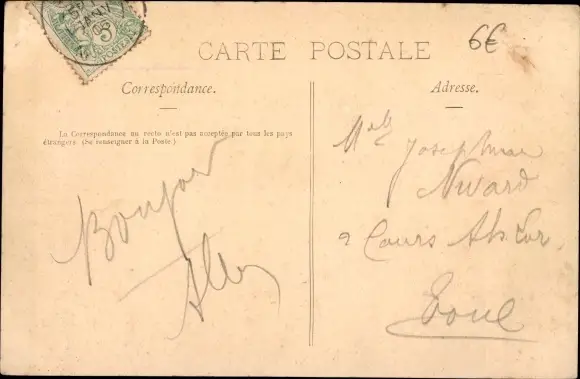 5
6€
CARTE POSTALE
Correspondance.
La Correspondance au recto n'est pas acceptée par tous les pays
étrangers. (Se renseigner à la Poste.)
Bonjour
Adresse.
Melle
Josephine
Niward
Cours
Toul